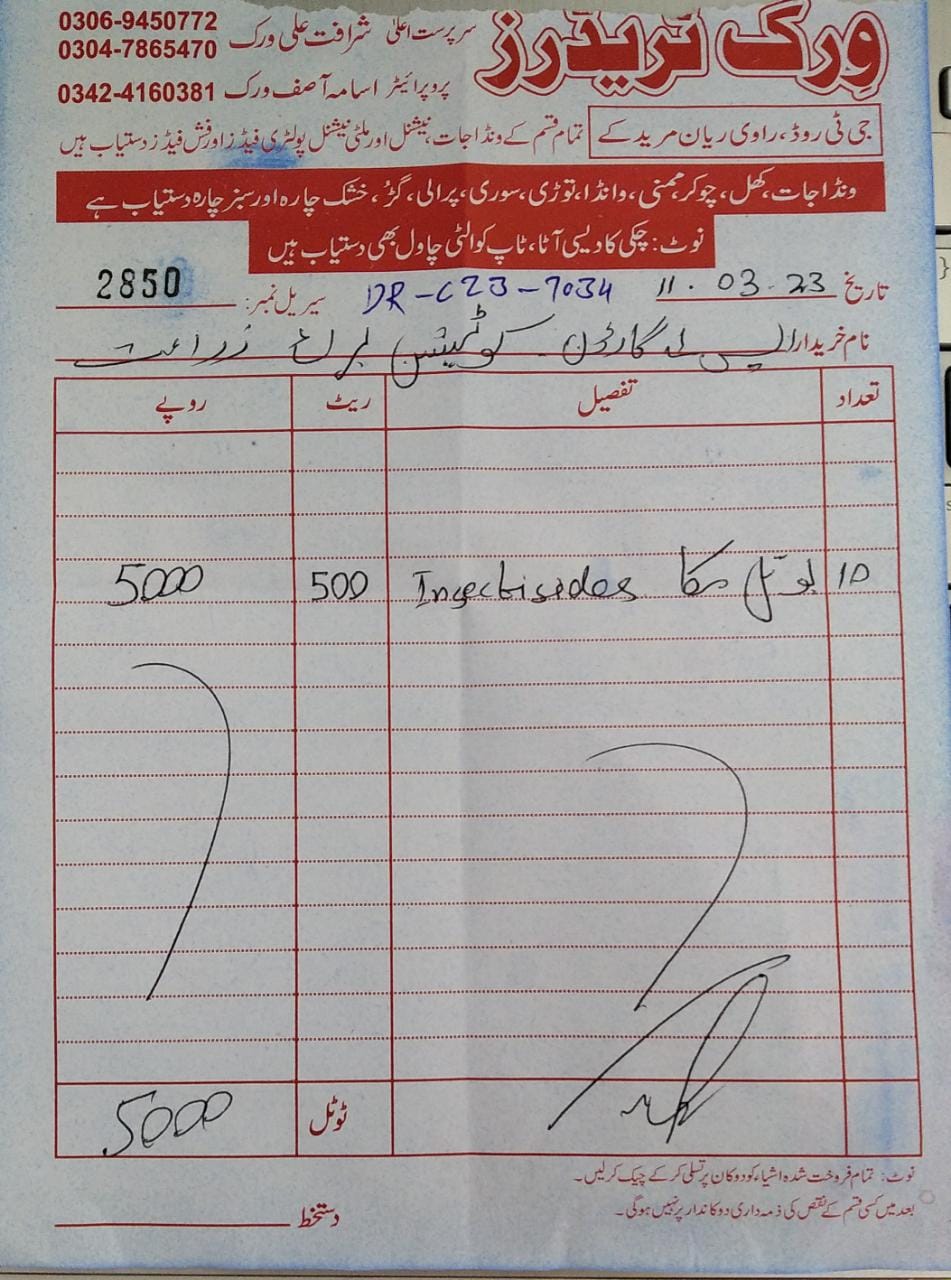 ورک ٹریڈرز
سرپرست اعلیٰ شرافت علی ورک 0306-9450772
0304-7865470
پروپرائیٹر اسامہ آصف ورک 0342-4160381
جی ٹی روڈ، راوی ریان مریدکے تمام قسم کے ونڈا جات، نیشنل اور ملٹی نیشنل پولٹری فیڈز اور فش فیڈز دستیاب ہیں
ونڈا جات، کھل، چوکر، ممنی، وانڈا، توڑی، سوری، پرالی، گڑ، خشک چارہ اور سبز چارہ دستیاب ہے
نوٹ: چکی کا دیسی آٹا، ٹاپ کوالٹی چاول بھی دستیاب ہیں
تاریخ 11.03.23 DR-C23-7034 سیریل نمبر: 2850
نام خریدار ایس پی گارڈن کوٹیشن برائے زراعت
تعداد تفصیل ریٹ روپے
10 بوتل Insectisides 500 5000
ٹوٹل 5000
نوٹ: تمام فروخت شدہ اشیاء کو دوکان پر تسلی کر کے چیک کر لیں۔
بعد میں کسی قسم کے نقص کی ذمہ داری دوکاندار پر نہیں ہوگی۔
دستخط